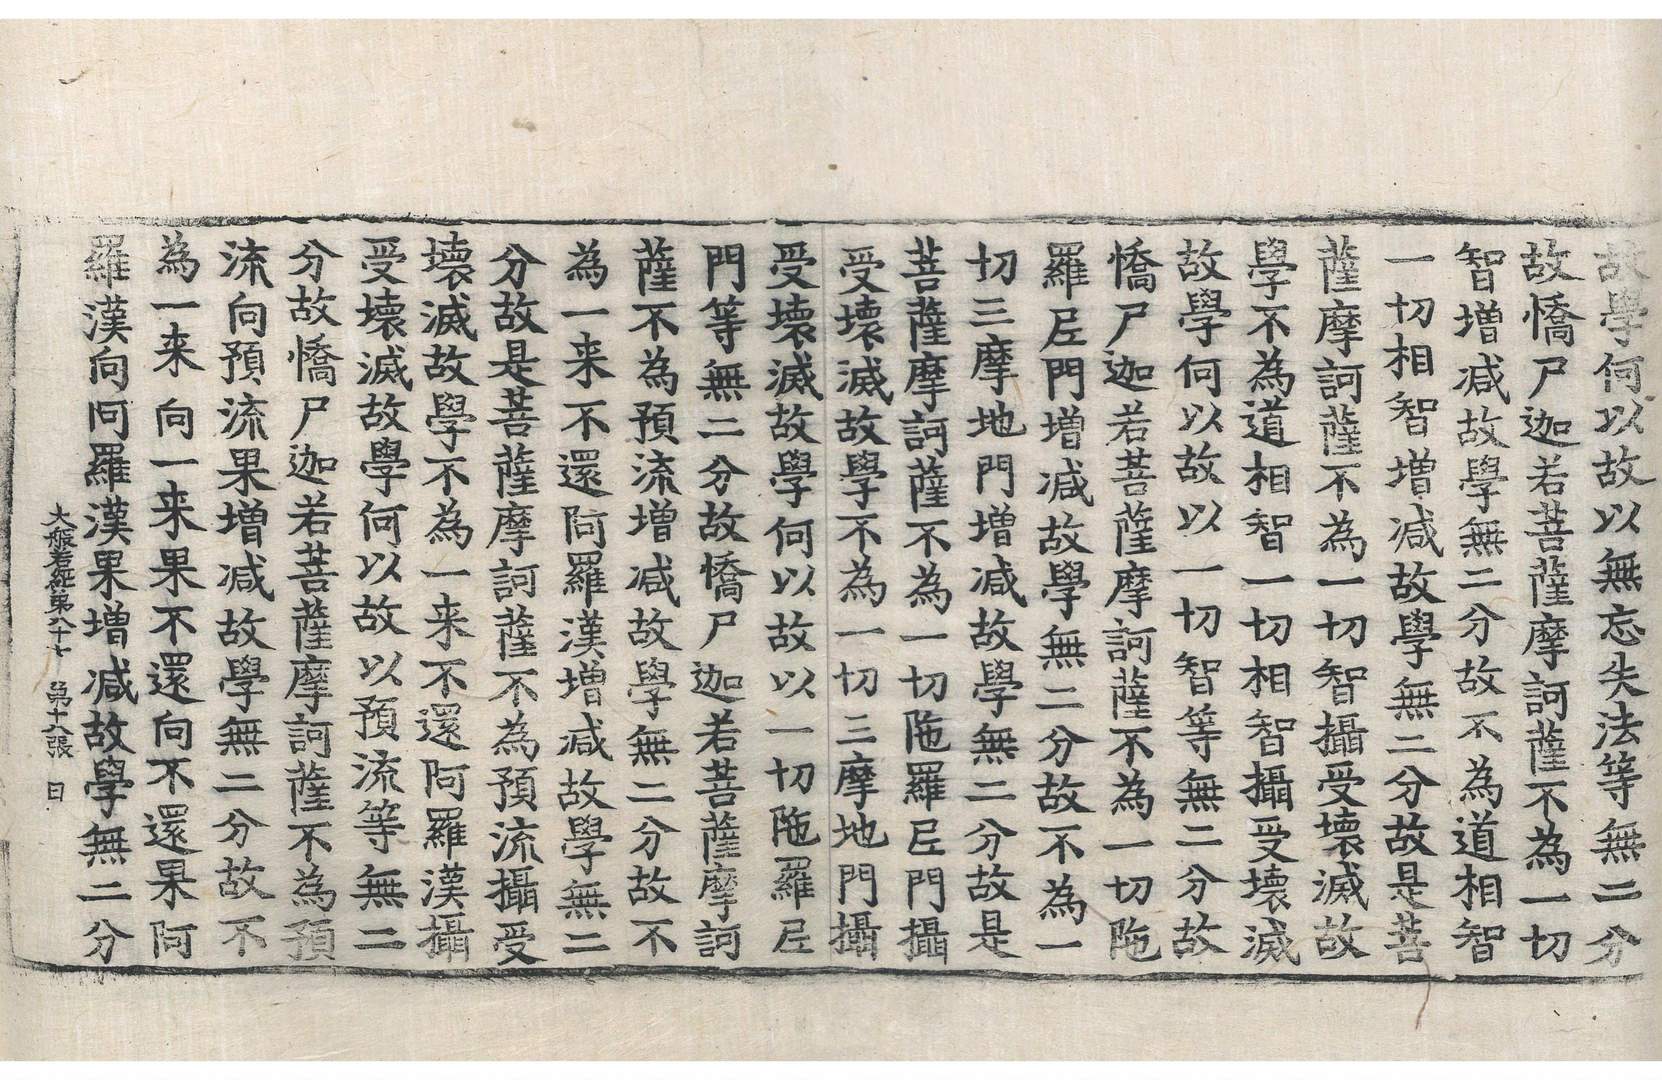 故學何以故以無忘失法等無二分
故憍尸迦若菩薩摩訶薩不為一切
智增减故學無二分故不為道相智
一切相智增减故學無二分故是菩
薩摩訶薩不為一切智攝受壞滅故
學不為道相智一切相智攝受壞滅
故學何以故以一切智等無二分故
憍尸迦若菩薩摩訶薩不為一切陁
羅尼門增减故學無二分故不為一
切三摩地門增减故學無二分故是
菩薩摩訶薩不為一切陁羅尼門攝
受壞滅故學不為一切三摩地門攝
受壞滅故學何以故以一切陁羅尼
門等無二分故憍尸迦若菩薩摩訶
薩不為預流增减故學無二分故不
為一来不還阿羅漢增减故學無二
分故是菩薩摩訶薩不為預流攝受
壞滅故學不為一来不還阿羅漢攝
受壞滅故學何以故以預流等無二
分故憍尸迦若菩薩摩訶薩不為預
流向預流果增减故學無二分故不
為一来向一来果不還向不還果阿
羅漢向阿羅漢果增减故學無二分
大般若經第八十七 第十八張 日